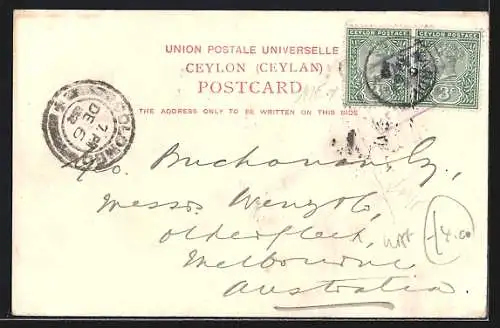 UNION POSTALE UNIVERSELLE
CEYLON (CEYLAN)
POSTCARD
THE ADDRESS ONLY TO BE WRITTEN ON THIS SIDE
CEYLON POSTAGE CEYLON POSTAGE
3c 3c
COLOMBO
7 PM
DE 6
Geo. Buchanan, Esq.,
Messrs
Melbourne
Australia.
4.00